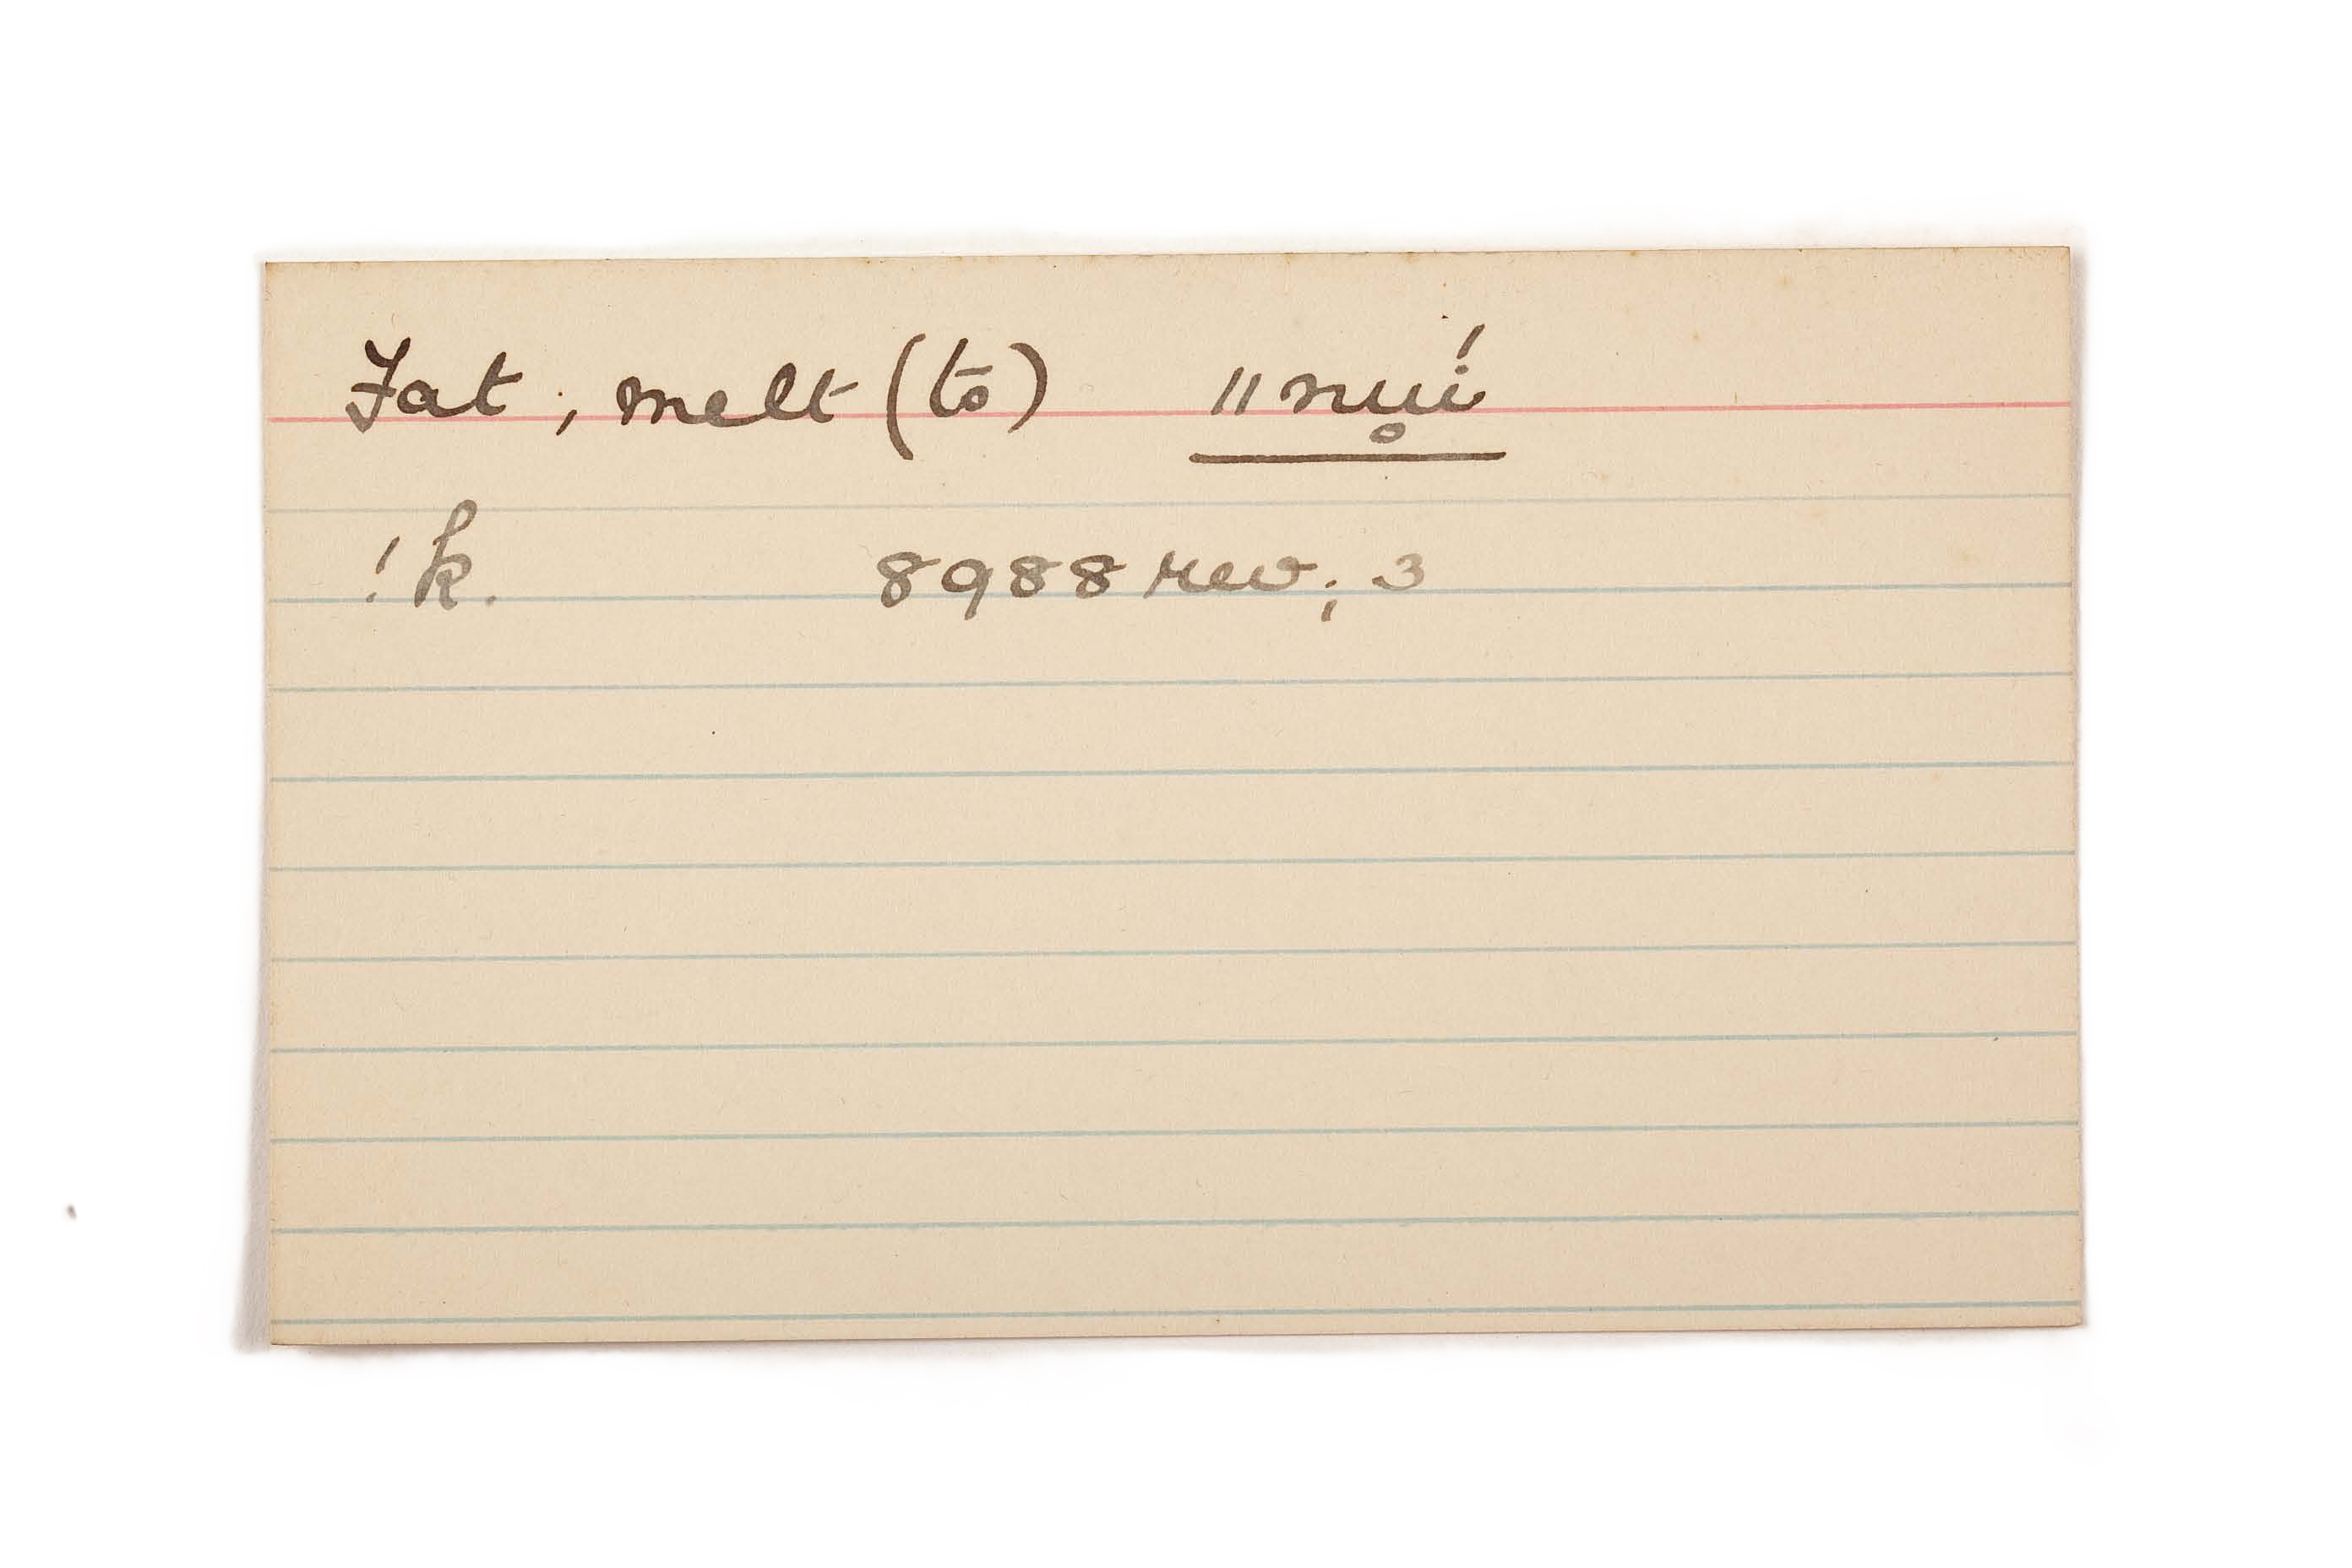 Fat, melt (to) ǁnu̥í
!k. 8988 rev; 3